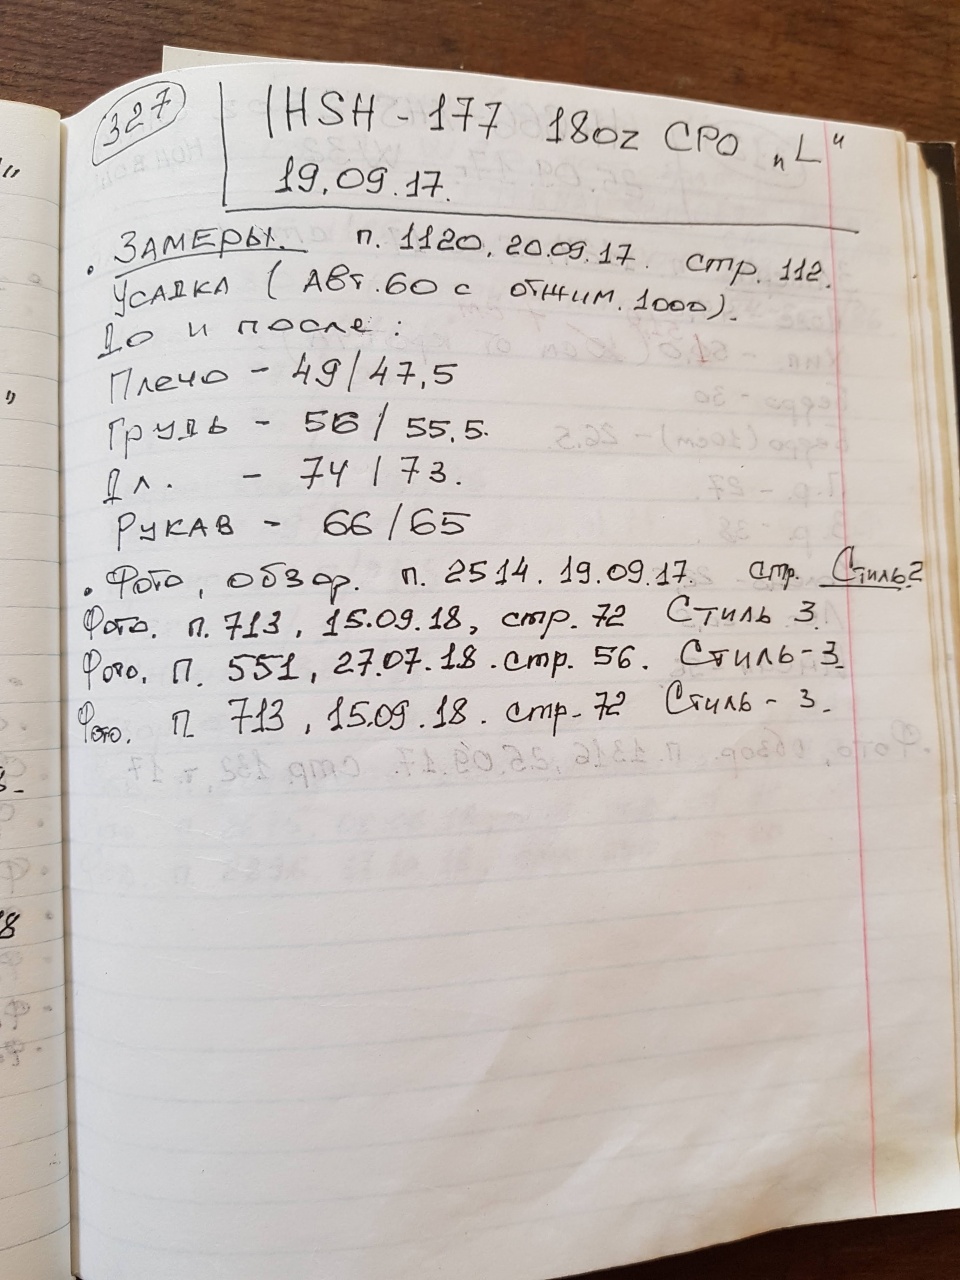 327
IHSH - 177 18oz CPO „L"
19.09.17.
. ЗАМЕРЫ. п. 1120, 20.09.17. стр. 112.
УСАДКА (АВТ. 60 с отжим. 1000).
До и после:
Плечо - 49/47,5
Грудь - 56/55.5.
Дл. - 74/73.
РУКАВ - 66/65
. Фото, обзор. п. 2514. 19.09.17. стр. Стиль2
Фото. п. 713, 15.09.18, стр. 72 Стиль 3.
Фото. П. 551, 27.07.18. стр. 56. Стиль-3
Фото. П. 713, 15.09.18. стр-72 Стиль - 3.